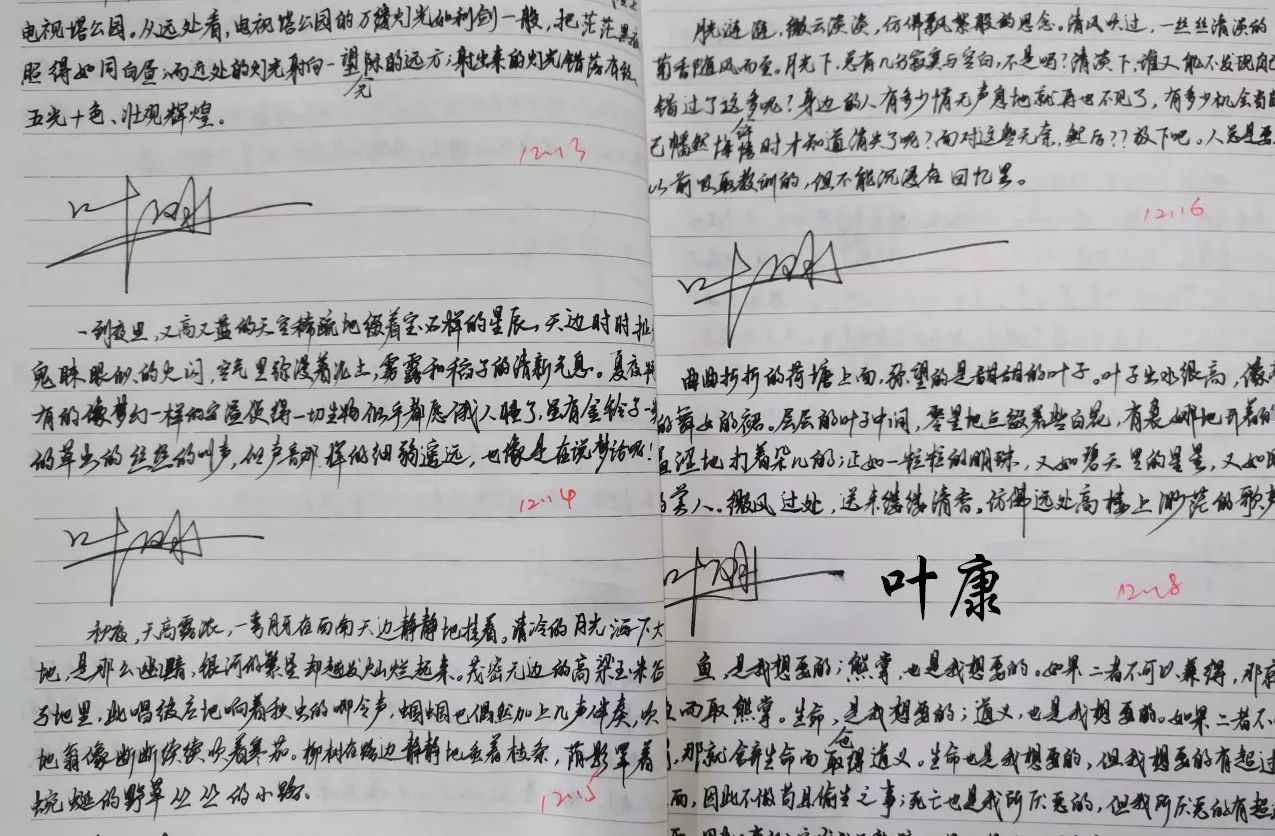 电视塔公园。从远处看,电视塔公园的万缕灯光如利剑一般,把茫茫黑夜
照得如同白昼;而近处的灯光射向一望无际的远方;射出来的灯光错落有致
五光十色、壮观辉煌。
12.13
一到夜里,又高又蓝的天空稀疏地缀着宝石样的星辰,天边时时扯
鬼眯眼似的火闪,空气里弥漫着泥土,雾露和稻子的清新气息。夏夜
有的像梦幻一样的安谧使得一切生物似乎都愿诚人睡了,虽有金铃子一
的草虫的丝丝的叫声,但声音那样的细弱遥远,也像是在说梦话呢!
12.14
秋夜,天高露浓,一弯月牙在西南天边静静地挂着。清冷的月光洒下大
地,是那么幽黯,银河的繁星却越发灿烂起来。茂密无边的高粱玉米谷
子地里,此唱彼应地响着秋虫的唧令声,蝈蝈也偶然加上几声伴奏,吹
地翁像断断续续吹着寒茄。柳树在路边静静地垂着枝条,荫影罩着
蜿蜒的野草丛丛的小路。
12.15
月光涟涟,微云淡淡,仿佛飘絮般的思念。清风吹过,一丝丝清淡的
菊香随风而至。月光下,总有几分寂寞与空白,不是吗?清淡下,谁又能不发现自己
错过了这多呢?身边的人有多少悄无声息地就再也不见了,有多少机会当自
己幡然悔悟时才知道消失了呢?面对这些无奈,然后??放下吧。人总是要
以前吸取教训的,但不能沉浸在回忆里。
12.16
曲曲折折的荷塘上面,弥望的是甜甜的叶子。叶子出水很高,像
的舞女的裙。层层的叶子中间,零星地点缀着些白花,有袅娜地开着的
羞涩地打着朵儿的;正如一粒粒的明珠,又如碧天里的星星,又如
的美人。微风过处,送来缕缕清香。仿佛远处高楼上渺茫的歌声
叶康
12.18
鱼,是我想要的;熊掌,也是我想要的。如果二者不可以兼得,那就
而取熊掌。生命,是我想要的;道义,也是我想要的。如果二者不
,那就舍弃生命而取得道义。生命也是我想要的,但我想要的有超过
而,因此不做苟且偷生之事;死亡也是我所厌恶的,但我所厌恶的有超